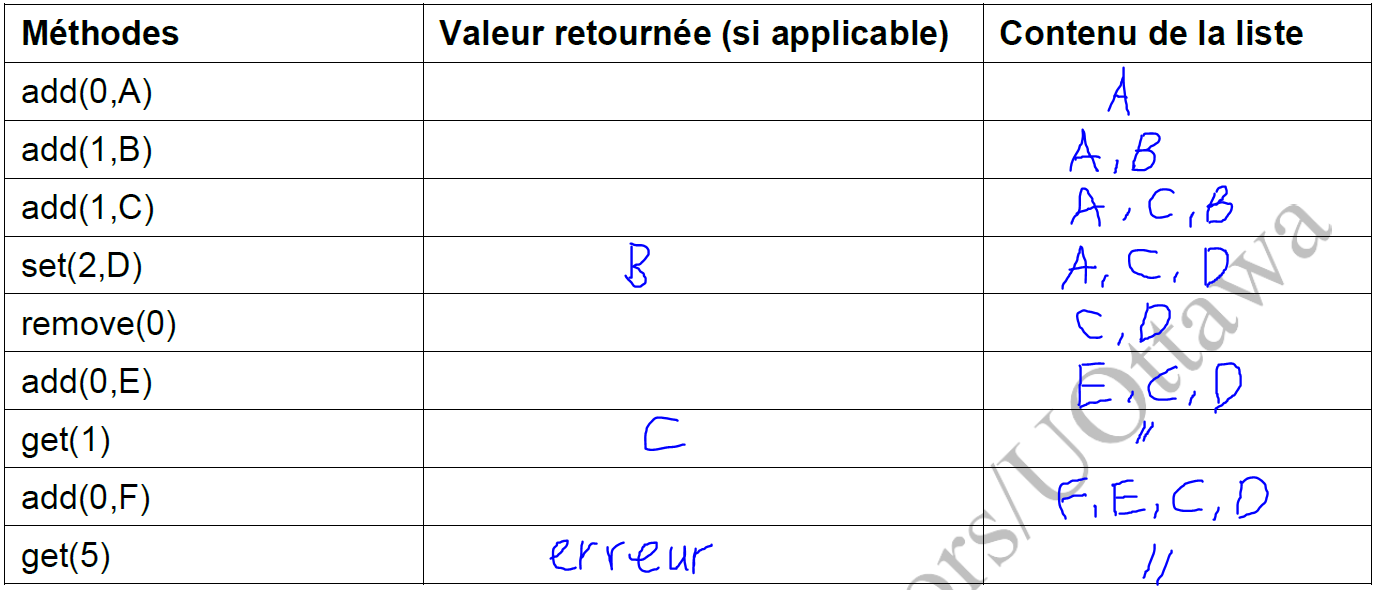 Méthodes Valeur retournée (si applicable) Contenu de la liste
add(0,A) A
add(1,B) A,B
add(1,C) A,C,B
set(2,D) B A,C,D
remove(0) C,D
add(0,E) E,C,D
get(1) C //
add(0,F) F,E,C,D
get(5) erreur //
ors/UOttawa